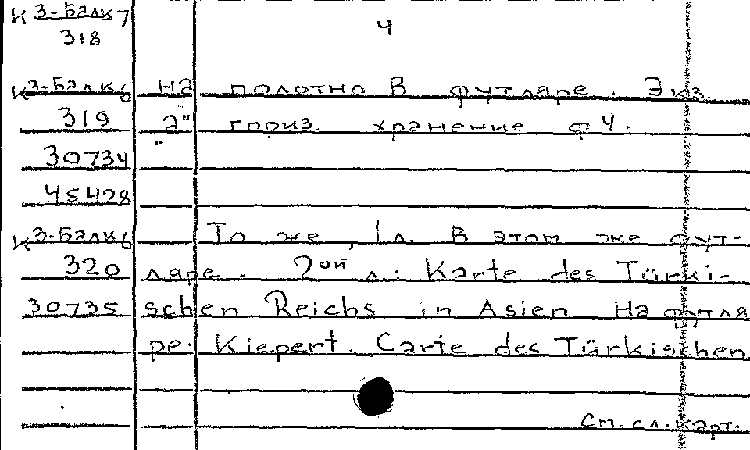 К 3-Балк 7
318
4
К 3-Балк 6 на полотно в футляре. Экз.
319 "а" гориз. хранение ф 4.
30734
45428
К 3-Балк 6 То же, 1 л. В этом же фут-
320 ляре. 2ой л.: Karte des Türki-
30735 schen Reichs in Asien На футля
ре: Kiepert. Carte des Türkischen
См. сл. карт.